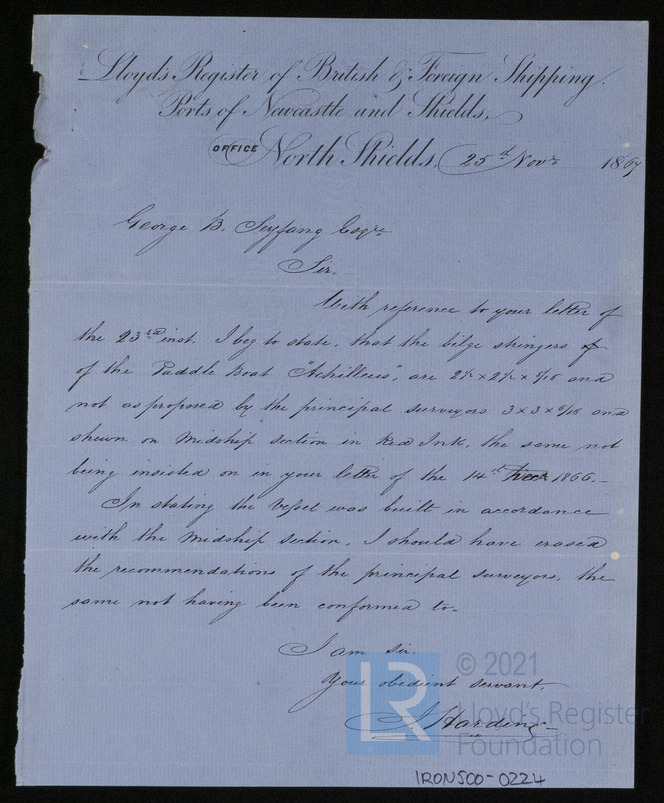 Lloyd's Register of British & Foreign Shipping.
Ports of Newcastle and Shields,
OFFICE North Shields, 25th Novr 1867
George B. Seyfang Esqre
Sir.
With reference to your letter of
the 23rd inst. I beg to state, that the bilge stringers
of the Paddle Boat "Achilleus", are 2½ x 2½ x 5/16 and
not as proposed by the principal surveyors 3 x 3 x 6/16 and
shewn on Midship section in Red Ink, the same not
being insisted on in your letter of the 14th 1866.-
In stating the Vessel was built in accordance
with the Midship section, I should have erased
the recommendations of the principal surveyors, the
same not having been conformed to-
I am Sir.
Your obedient servant,
J. Harding
LR © 2021
Lloyd's Register
Foundation
IRON500-0224